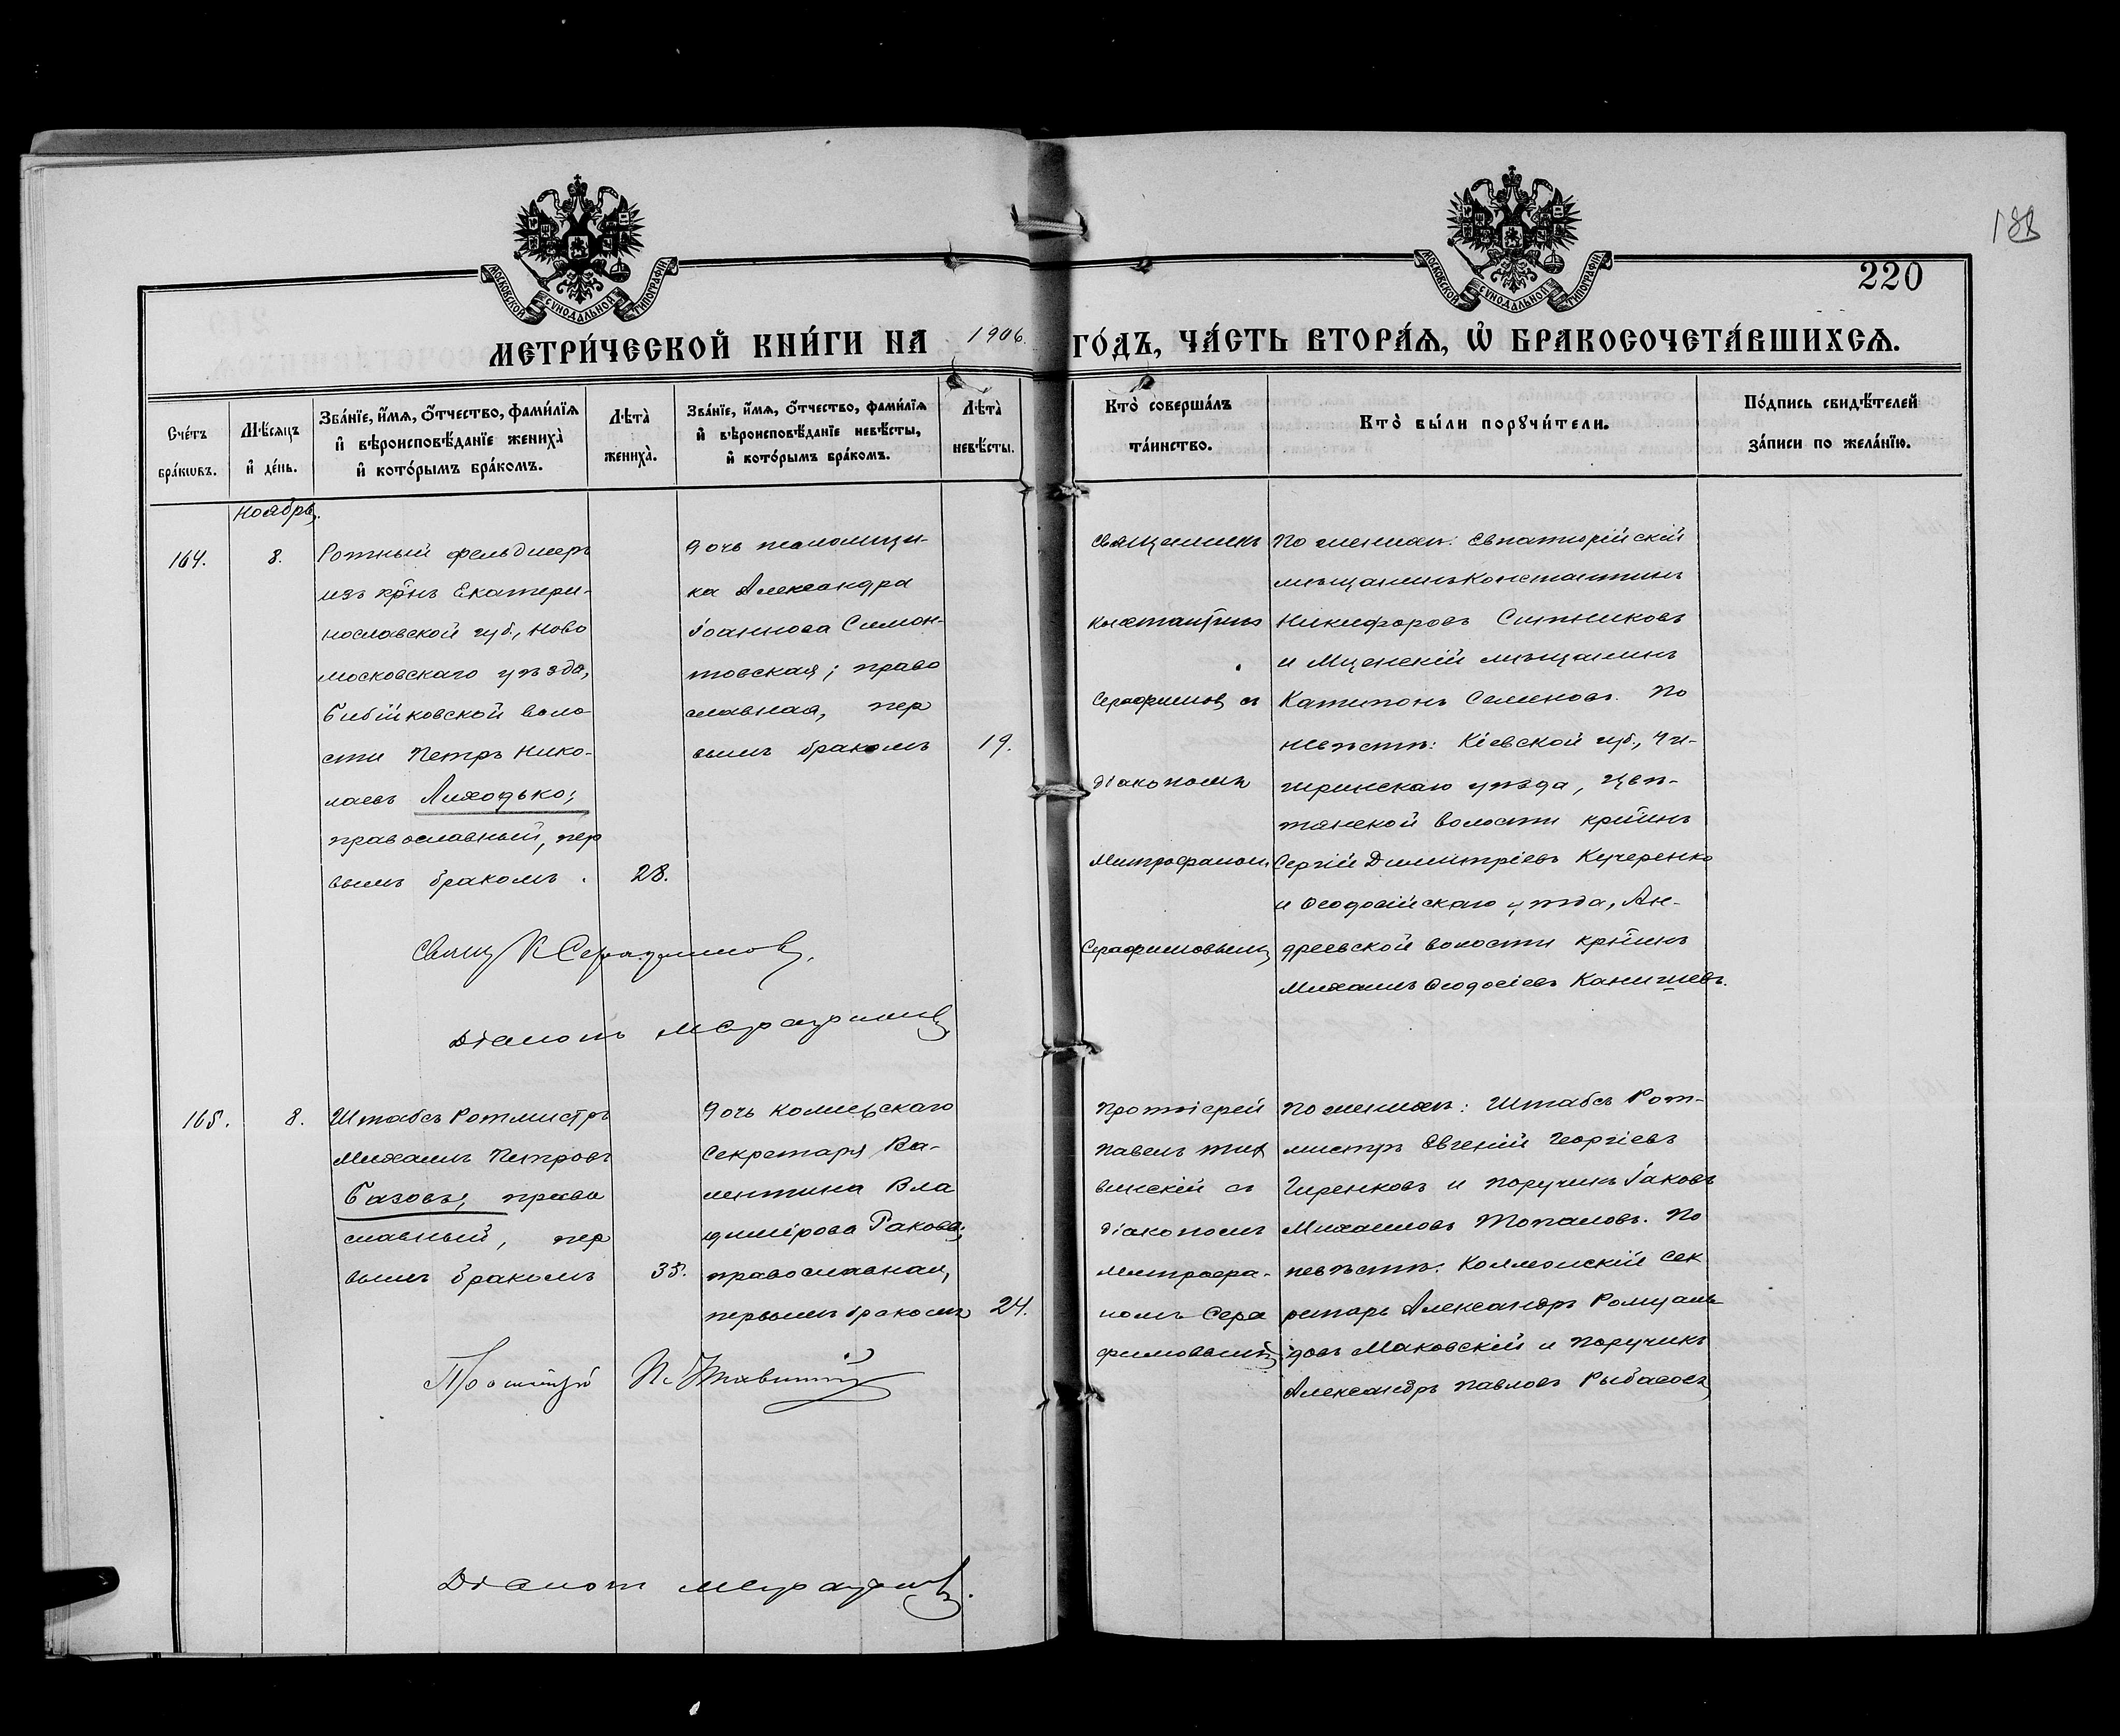 188
220
МОСКОВСКОЙ СѴНОДАЛЬНОЙ ТИПОГРАФІИ
МОСКОВСКОЙ СѴНОДАЛЬНОЙ ТИПОГРАФІИ
МЕТРИ́ЧЕСКОЙ КНИ́ГИ НА 1906. ГО́ДЪ, ЧА́СТЬ ВТОРА́Ѧ, Ѡ҆ БРАКОСОЧЕТА́ВШИХСѦ.
Сче́тъ
бра́кѡвъ.
Мѣ́сяцъ
и҆ де́нь.
Зва́нїе, и҆́мѧ, ѻ҆́тчество, фами́лїѧ
и҆ вѣроисповѣ́данїе жениха̀
и҆ кото́рымъ бра́комъ.
Лѣта̀
жениха̀.
Зва́нїе, и҆́мѧ, ѻ҆́тчество, фами́лїѧ
и҆ вѣроисповѣ́данїе невѣ́сты,
и҆ кото́рымъ бра́комъ.
Лѣта̀
невѣ́сты.
Кто̀ соверша́лъ
та́инство.
Кто̀ бы́ли порꙋчи́тели.
По́дпись свидѣ́телей
за́писи по жела́нїю.
Ноябрь.
164.
8.
Ротный фельдшеръ
изъ крнъ Екатери-
нославской губ., Ново
московскаго уѣзда,
Бибиковской воло
сти Петръ Нико-
лаевъ Лиходько;
православный, пер
вымъ бракомъ.
28.
дочь
ка Александра
Іоаннова Симон-
товская; право
славная, пер
вымъ бракомъ
19.
Священникъ
Константинъ
Серафимовъ съ
діакономъ
Митрофаном.
Серафимовымъ
По женихѣ: Евпаторійскій
мѣщанинъ Константинъ
Никифоровъ Ситниковъ
и Мценскій мѣщанинъ
Капитонъ Семеновъ. По
невѣстѣ: Кіевской губ., Чи-
гиринскаго уѣзда, Цвѣ-
тянской волости крѣйинъ
Сергій Димитріевъ Кучеренко
и Ѳеодосійскаго уѣзда, Ан-
дреевской волости крѣйинъ
Михаилъ Ѳеодосіевъ
Свящ К Серафимовъ.
Діаконъ М Серафимовъ
165.
8.
Штабсъ Ротмистръ
Михаилъ Петровъ
Базовъ, право
славный, пер
вымъ бракомъ
35.
дочь Коллежскаго
Секретаря Ва-
лентина Вла
димірова Ракова;
православная,
первымъ бракомъ
24.
Протоіерей
Павелъ
винскій съ
діакономъ
Митрофа-
номъ Сера
фимовымъ
По женихѣ: Штабсъ Рот-
мистръ Евгеній Георгіевъ
Гиренковъ и поручикъ Іаковъ
Михаиловъ Топаловъ. По
невѣстѣ: Коллежскій Сек
ретарь Александръ Ромуаль
довъ Маковскій и поручикъ
Александръ Павловъ Рыбасовъ
Протоіерей П.
Діаконъ М Серафимовъ.